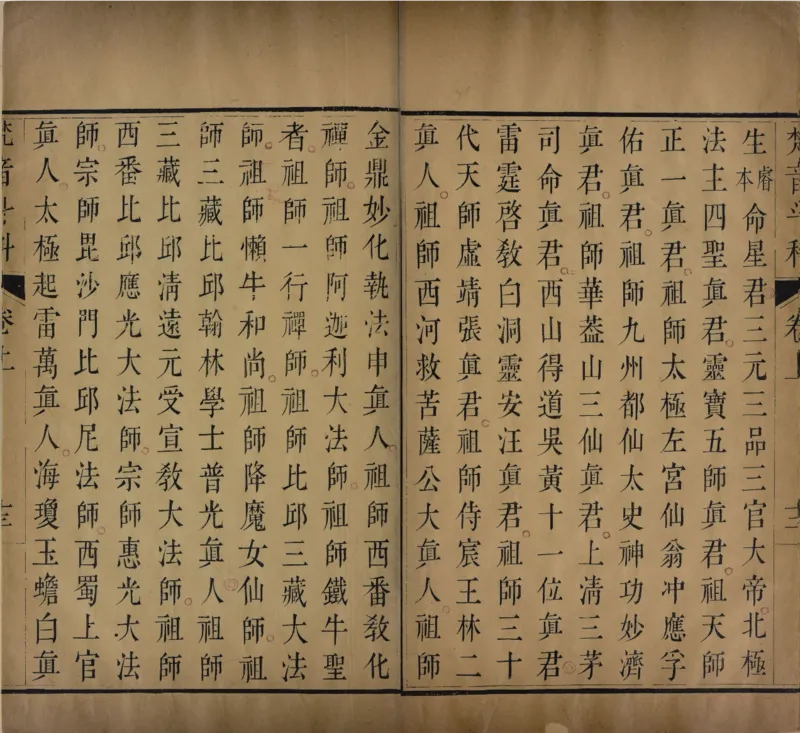 梵音斗科 卷上 十三
生本睿命星君三元三品三官大帝北極
法主四聖眞君靈寶五師眞君祖天師
正一眞君祖師太極左宮仙翁冲應孚
佑眞君祖師九州都仙太史神功妙濟
眞君祖師華葢山三仙眞君上淸三茅
司命眞君西山得道吳黃十一位眞君
雷霆啓敎白洞靈安汪眞君祖師三十
代天師虛靖張眞君祖師侍宸王林二
眞人祖師西河救苦薩公大眞人祖師
金鼎妙化執法申眞人祖師西番敎化
禪師祖師阿迦利大法師祖師鐵牛聖
者祖師一行禪師祖師比邱三藏大法
師祖師懶牛和尚祖師降魔女仙師祖
師三藏比邱翰林學士普光眞人祖師
三藏比邱淸遠元受宣敎大法師祖師
西番比邱應光大法師宗師惠光大法
師宗師毘沙門比邱尼法師西蜀上官
眞人太極起雷萬眞人海瓊玉蟾白眞
梵音斗科 卷上 十三